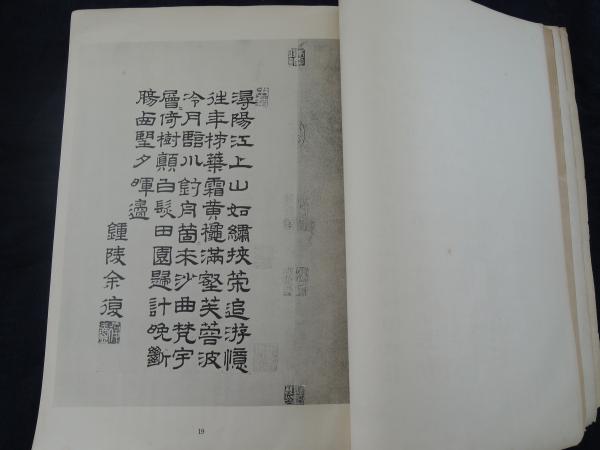 潯陽江上山如繡挾策追游憶
往年柿葉霜黃滿壑芙蓉波
冷月臨川釣舟箇來沙曲梵宇
層倚樹顛白髮田園歸計晚斷
腸西望夕暉邊
鍾陵余復
19